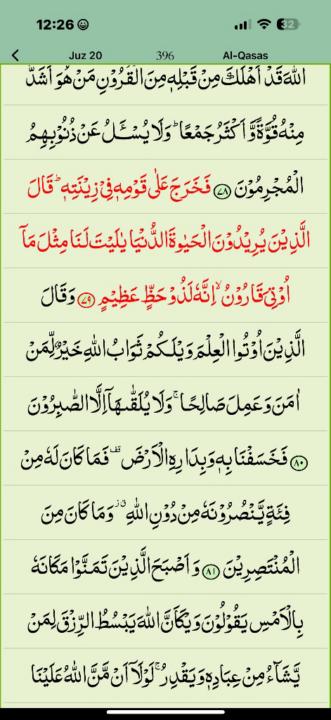 12:26
32
Juz 20 396 Al-Qasas
اللّٰهَ قَدْ اَهْلَكَ مِنْ قَبْلِهٖ مِنَ الْقُرُوْنِ مَنْ هُوَ اَشَدُّ
مِنْهُ قُوَّةً وَّاَكْثَرُ جَمْعًا ؕ وَلَا يُسْـَٔلُ عَنْ ذُنُوْبِهِمُ
الْمُجْرِمُوْنَ ﴿۷۸﴾ فَخَرَجَ عَلٰى قَوْمِهٖ فِيْ زِيْنَتِهٖ ؕ قَالَ
الَّذِيْنَ يُرِيْدُوْنَ الْحَيٰوةَ الدُّنْيَا يٰلَيْتَ لَنَا مِثْلَ مَاۤ
اُوْتِيَ قَارُوْنُ ۙ اِنَّهٗ لَذُوْ حَظٍّ عَظِيْمٍ ﴿۷۹﴾ وَقَالَ
الَّذِيْنَ اُوْتُوا الْعِلْمَ وَيْلَكُمْ ثَوَابُ اللّٰهِ خَيْرٌ لِّمَنْ
اٰمَنَ وَعَمِلَ صَالِحًا ۚ وَلَا يُلَقّٰىهَاۤ اِلَّا الصّٰبِرُوْنَ
﴿۸۰﴾ فَخَسَفْنَا بِهٖ وَبِدَارِهِ الْاَرْضَ ۟ فَمَا كَانَ لَهٗ مِنْ
فِئَةٍ يَّنْصُرُوْنَهٗ مِنْ دُوْنِ اللّٰهِ ۗ وَمَا كَانَ مِنَ
الْمُنْتَصِرِيْنَ ﴿۸۱﴾ وَاَصْبَحَ الَّذِيْنَ تَمَنَّوْا مَكَانَهٗ
بِالْاَمْسِ يَقُوْلُوْنَ وَيْكَاَنَّ اللّٰهَ يَبْسُطُ الرِّزْقَ لِمَنْ
يَّشَآءُ مِنْ عِبَادِهٖ وَيَقْدِرُ ۚ لَوْلَاۤ اَنْ مَّنَّ اللّٰهُ عَلَيْنَا